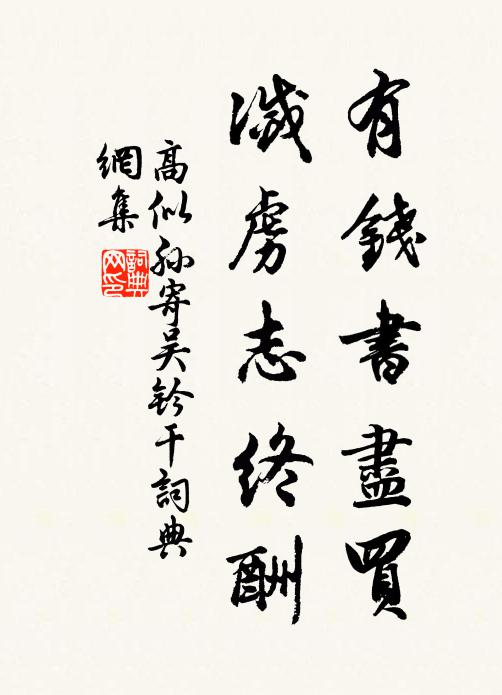 有錢書盡買
滅虜志終酬
高似孙寄吴鈐干詞典
網集
詞典
网印